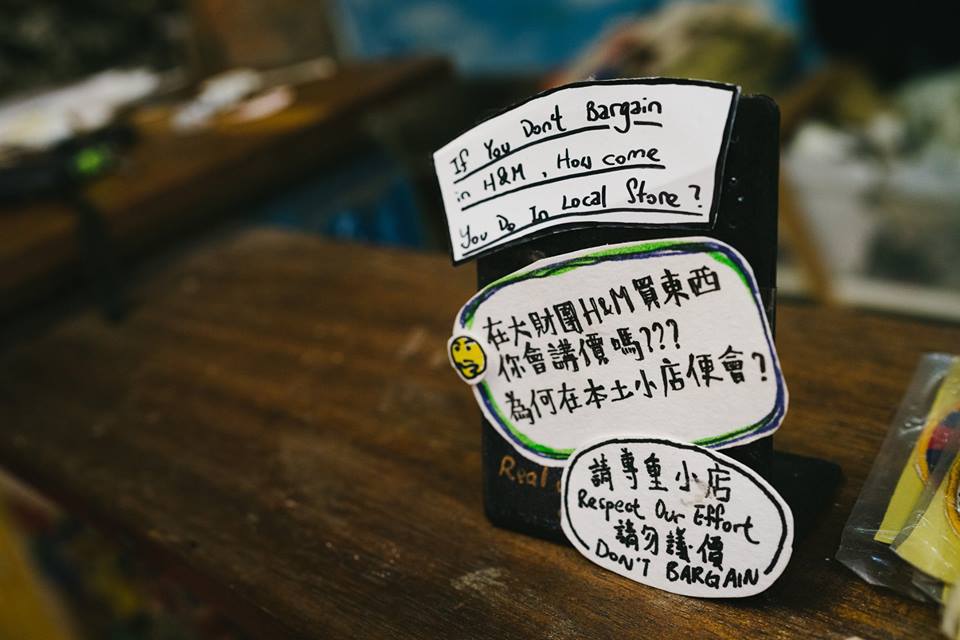 If You Don't Bargain
in H&M, How come
You Do In Local Store?
在大財團H&M買東西
你會講價嗎???
為何在本土小店便會?
Real
請尊重小店
Respect Our Effort
請勿議價
DON'T BARGAIN